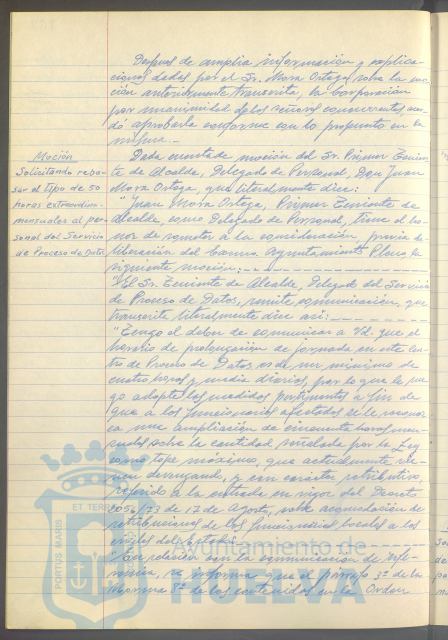 Después de amplia información y explica-
ciones dadas por el Sr. Mora Ortega sobre la mo-
ción anteriormente transcrita, la Corporación
por unanimidad de los señores concurrentes, acor-
dó aprobarla conforme con lo propuesto en la
misma.-
Moción
Solicitando reba-
sar el tipo de 50
horas extraordina-
mensuales al per-
sonal del Servicio
de Proceso de Datos
Dada cuenta de moción del Sr. Primer Tenien-
te de Alcalde, Delegado de Personal, Don Juan
Mora Ortega, que literalmente dice:
"Juan Mora Ortega, Primer Teniente de
Alcalde, como Delegado de Personal, tiene el ho-
nor de someter a la consideración previa de-
liberación del Excmo. Ayuntamiento Pleno, la
siguiente moción:
"El Sr. Teniente de Alcalde, Delegado del Servicio
de Proceso de Datos, remite comunicación, que
transcrita literalmente dice así:
"Tengo el deber de comunicar a Vd. que el
horario de prolongación de jornada en este Cen-
tro de Proceso de Datos es de un mínimo de
cuatro horas y media diarias, por lo que le rue-
go adopte las medidas pertinentes a fin de
que a los funcionarios afectados se le reconoz-
ca una ampliación de cincuenta horas men-
suales sobre la cantidad señalada por la Ley
como tope máximo, que actualmente vie-
nen devengando, y con carácter retributivo,
referido a la entrada en vigor del Decreto
2056/73 de 17 de Agosto, sobre acomodación de
retribuciones de los funcionarios locales a los
civiles del Estado.
"En relación con la comunicación de refe-
rencia, se informa que el párrafo 3º de la
Norma 8ª de las contenidas en la Orden
PORTUS MARIS
ET TERRAE
Ayuntamiento de
HUELVA